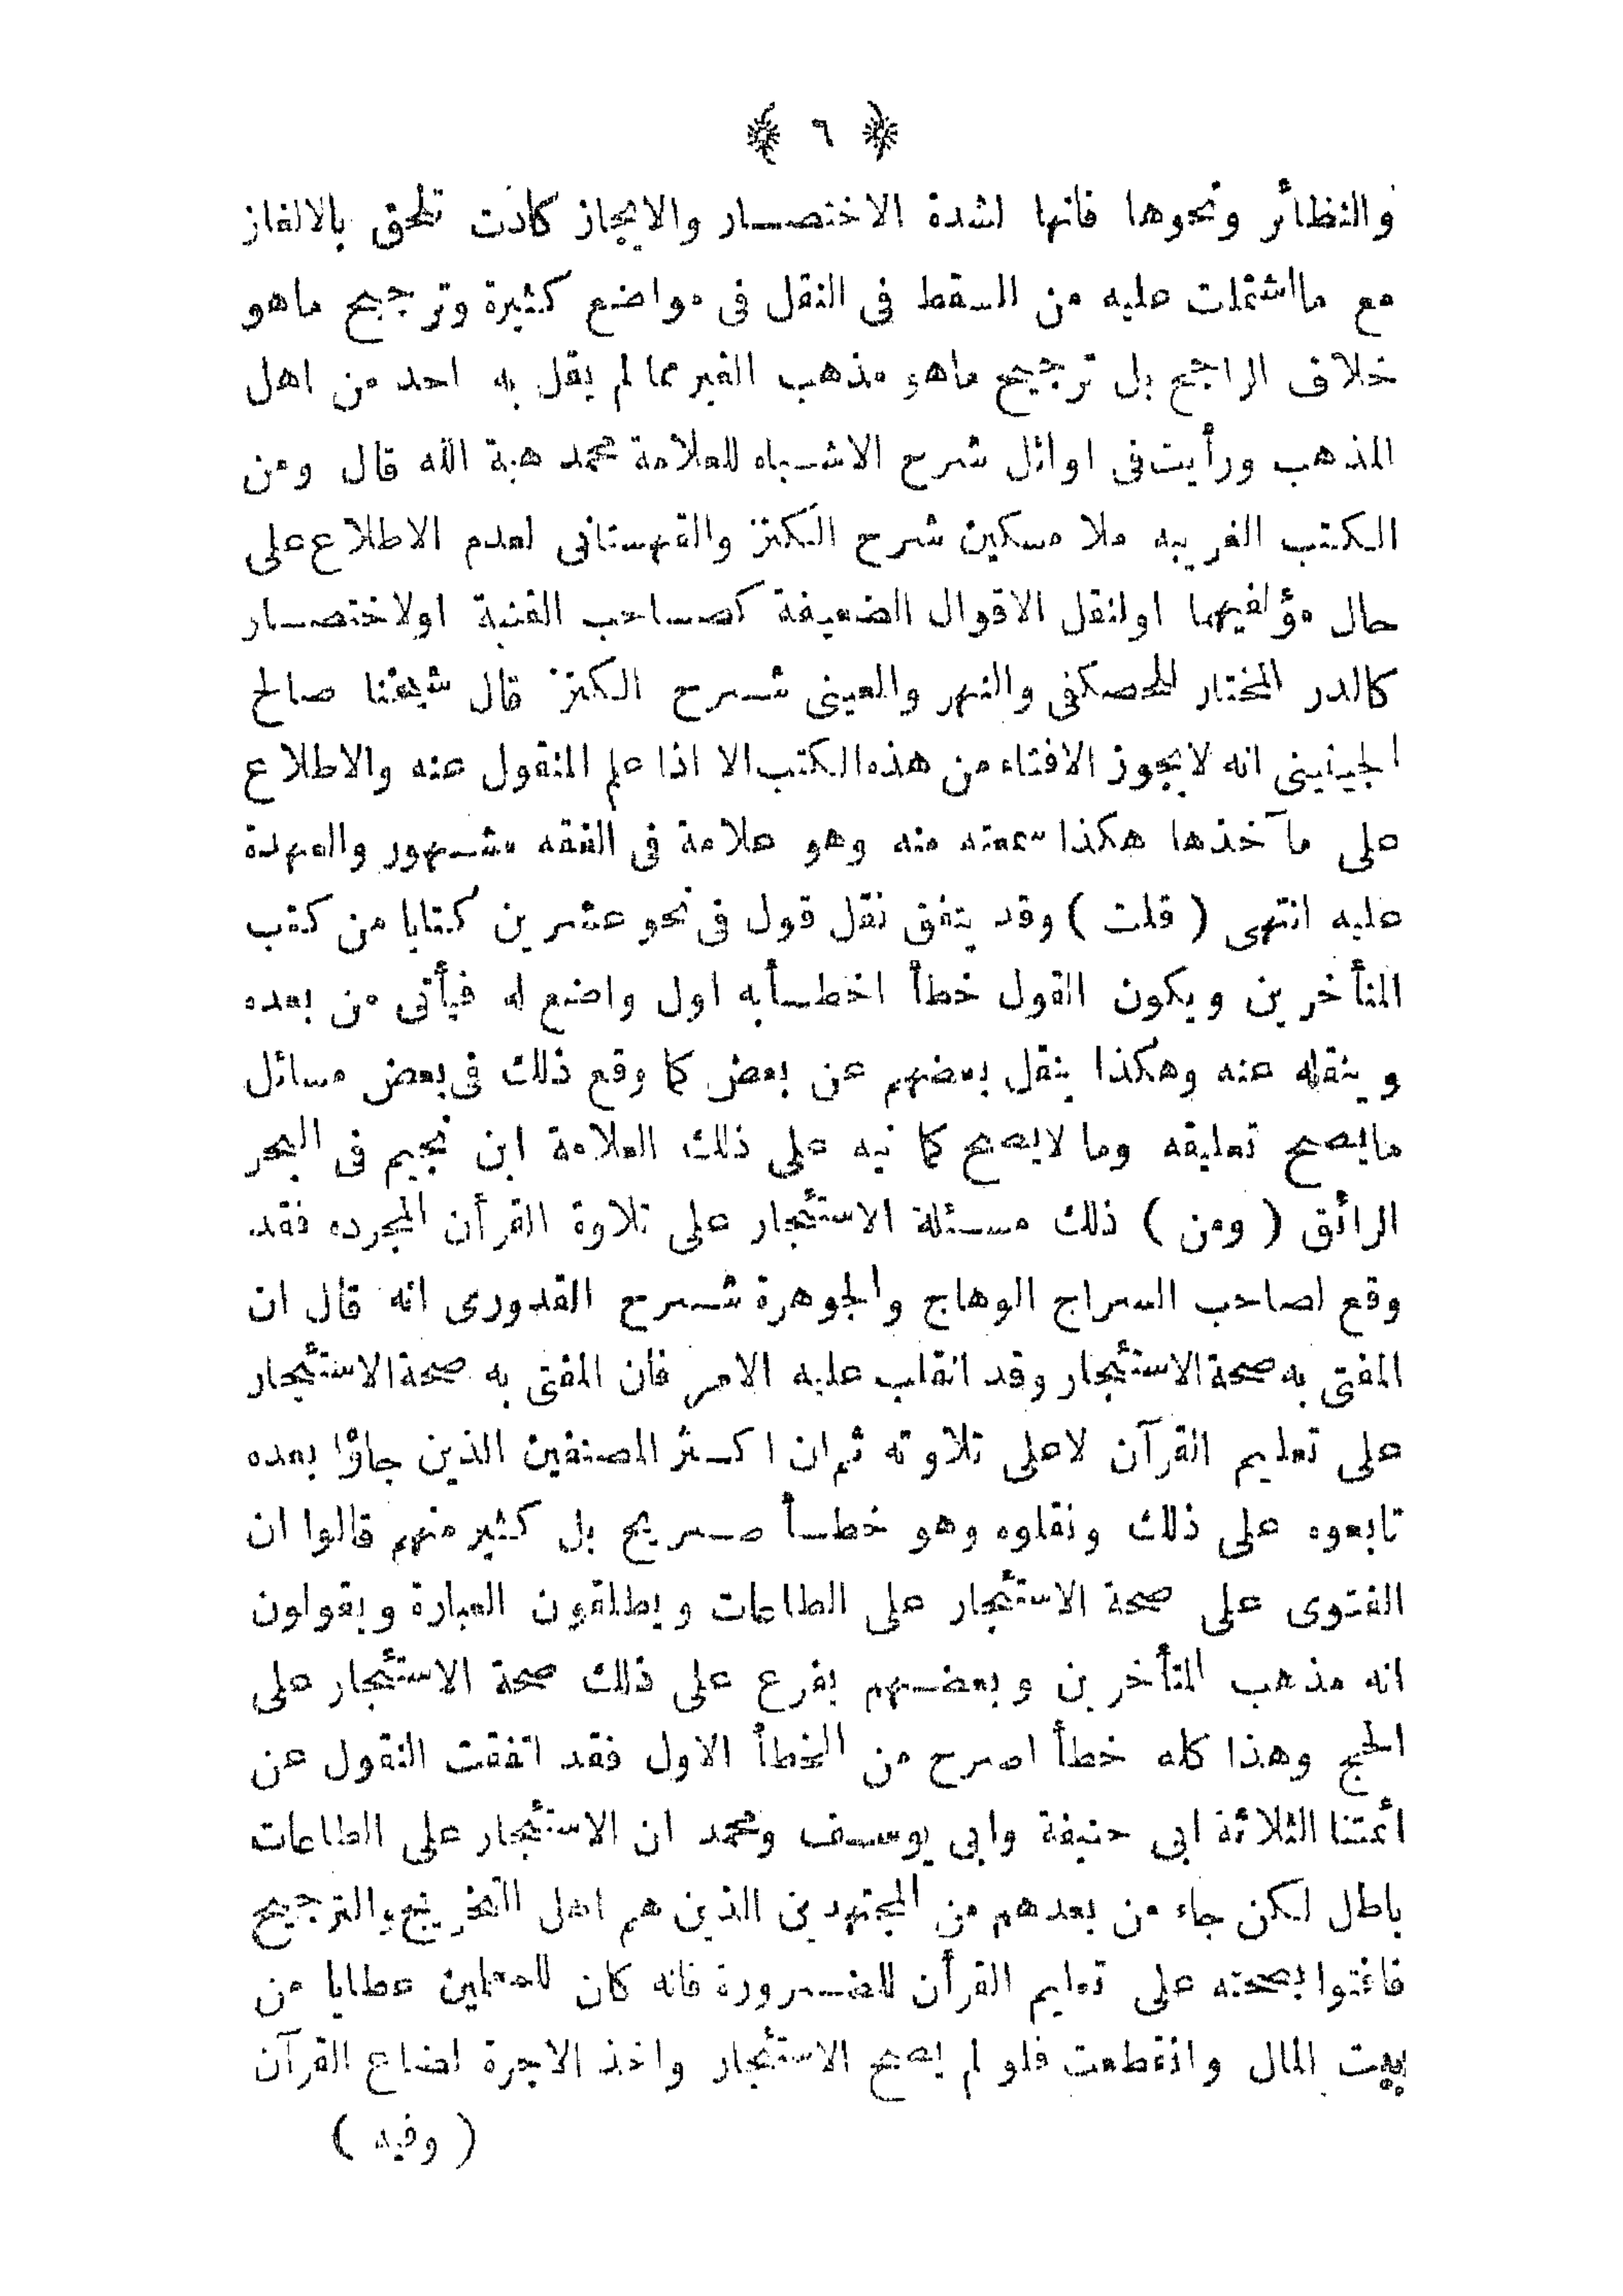 ﴿ ٦ ﴾
والنظائر ونحوها فانها لشدة الاختصار والايجاز كادت تلحق بالالغاز
مع مااشتملت عليه من السقط فى النقل فى مواضع كثيرة وترجيح ماهو
خلاف الراجح بل ترجيح ماهو مذهب الغير مما لم يقل به احد من اهل
المذهب ورأيت فى اوائل شرح الاشباه للعلامة محمد هبة الله قال ومن
الكتب الغريبه ملا مسكين شرح الكنز والقهستانى لعدم الاطلاع على
حال مؤلفيهما اولنقل الاقوال الضعيفة كصاحب القنية اولاختصار
كالدر المختار للحصكفى والنهر والعينى شرح الكنز قال شيخنا صالح
الجينينى انه لايجوز الافتاء من هذه الكتب الا اذا علم المنقول عنه والاطلاع
على مآخذها هكذا سمعته منه وهو علامة فى الفقه مشهور والعهدة
عليه انتهى ( قلت ) وقد يتفق نقل قول فى نحو عشرين كتابا من كتب
المتأخرين ويكون القول خطأ اخطأبه اول واضع له فيأتى من بعده
وينقله عنه وهكذا ينقل بعضهم عن بعض كما وقع ذلك فى بعض مسائل
مايصح تعليقه وما لايصح كما نبه على ذلك العلامة ابن نجيم فى البحر
الرائق ( ومن ) ذلك مسئلة الاستئجار على تلاوة القرأن المجرده فقد
وقع لصاحب السراج الوهاج والجوهرة شرح القدورى انه قال ان
المفتى به صحة الاستئجار وقد انقلب عليه الامر فان المفتى به صحة الاستئجار
على تعليم القرآن لاعلى تلاوته ثم ان اكثر المصنفين الذين جاؤا بعده
تابعوه على ذلك ونقلوه وهو خطأ صريح بل كثير منهم قالوا ان
الفتوى على صحة الاستئجار على الطاعات ويطلقون العبارة ويقولون
انه مذهب المتأخرين وبعضهم يفرع على ذلك صحة الاستئجار على
الحج وهذا كله خطأ اصرح من الخطأ الاول فقد اتفقت النقول عن
أئمتنا الثلاثة ابى حنيفة وابى يوسف ومحمد ان الاستئجار على الطاعات
باطل لكن جاء من بعدهم من المجتهدين الذين هم اهل التخريج والترجيح
فافتوا بصحته على تعليم القرأن للضرورة فانه كان للمعلمين عطايا من
بيت المال وانقطعت فلو لم يصح الاستئجار واخذ الاجرة لضاع القرآن
( وفيه )